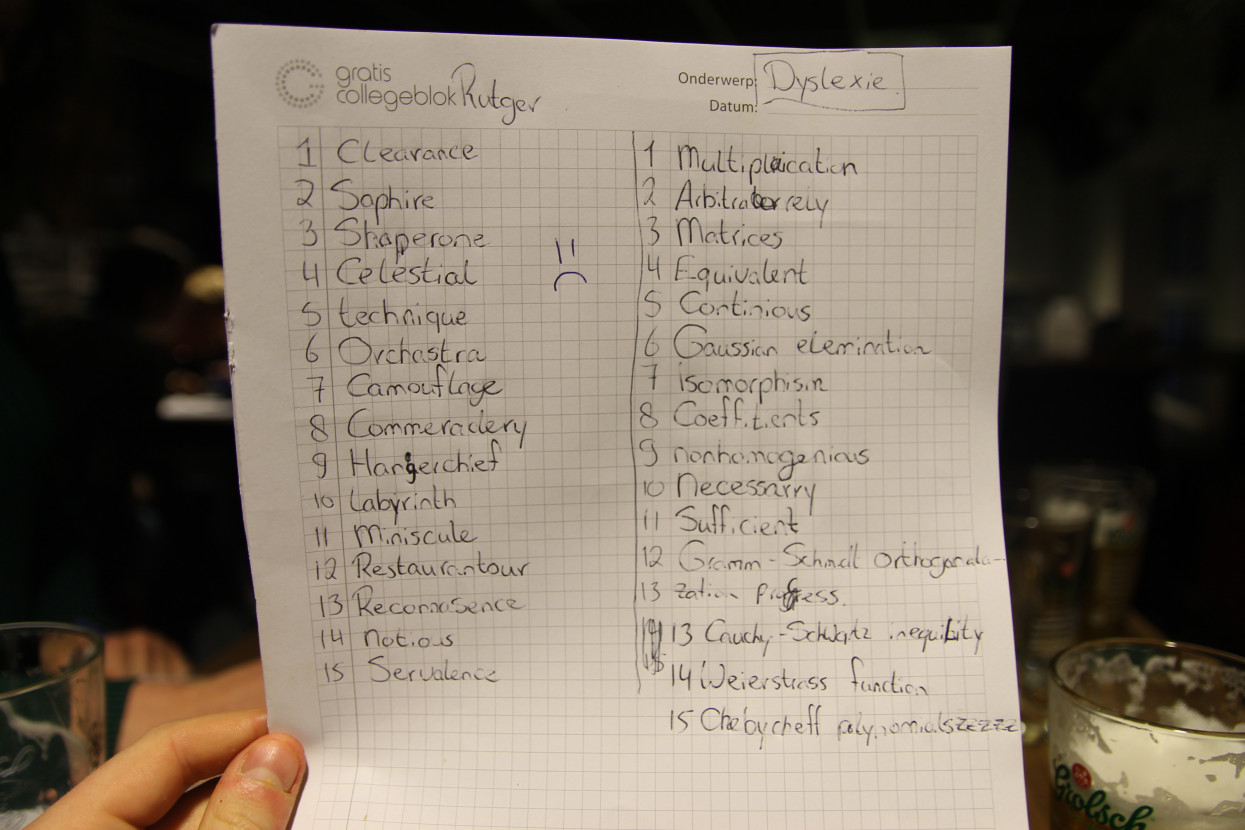 gratis
collegeblok Rutger
Onderwerp: Dyslexie
Datum:
1 Clearance
2 Saphire
3 Shaperone
4 Celestial
5 technique
6 Orchastra
7 Camouflage
8 Commeradery
9 Hangerchief
10 Labyrinth
11 Miniscule
12 Restaurantour
13 Reconnosence
14 notious
15 Servalence
1 Multiplaication
2 Arbitrarely
3 Matrices
4 Equivalent
5 Continious
6 Gaussian elemination
7 isomorphism
8 Coeffitients
9 nonhomogenious
10 Necessarry
11 Sufficient
12 Gramm-Schmidt Orthogonala-
13 zation
13 Cauchy-Schwartz inequility
14 Weierstrass function
15 Chebycheff polynomialszzzzz
Grolsch